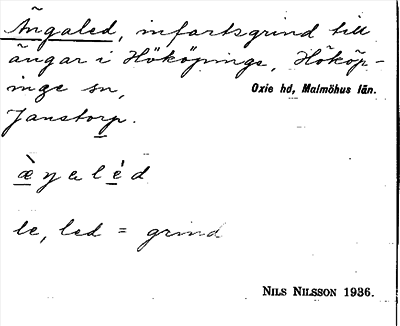 Ängaled, infartsgrind till
ängar i Hököpinge, Hököp-
inge sn, Oxie hd, Malmöhus län.
Janstorp.
æ̀ŋalèd
le, led = grind
NILS NILSSON 1936.